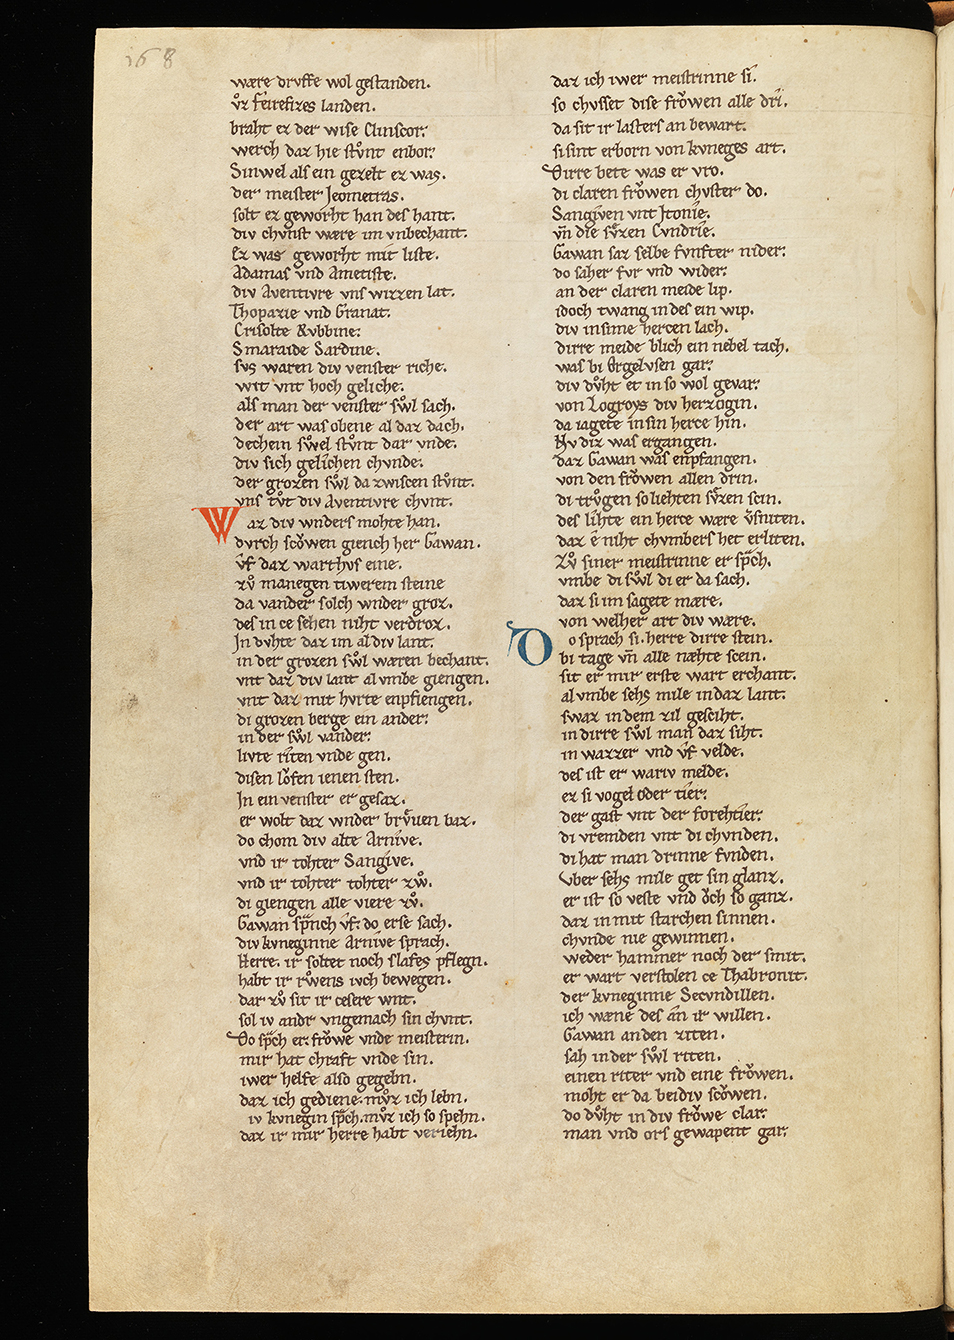 168
wære drvffe wol gestanden.
vͦz feirefizes landen.
braht ez der wise Clinscor.
werch daz hie stvͦnt enbor.
Sinwel als ein gezelt ez was.
der meister Jeometras.
solt ez geworht han des hant.
div chvnst wære im vnbechant.
Ez was geworht mit liste.
Adamas vnd Ametiste.
div Aventivre vns wizzen lat.
Thopazie vnd Granat.
Crisolte Rvbbine.
Smaraide Sardine.
svs waren div venster riche.
wit vnt hoch geliche.
als man der venster svͦl sach.
der art was obene al daz dach.
dechein svͦel stvͦnt dar vnde.
div sich gelichen chvnde.
der grozen svͦl da zwiscen stvͦnt.
vns tvͦt div Aventivre chvnt.
Waz div wnders mohte han.
dvrch scoͮwen giench her Gawan.
vͦf daz warthvs eine.
zvͦ manegen tiwerem steine
da vander solch wnder groz.
des in ce sehen niht verdroz.
In dvhte daz im al div lant.
in der grozen svͦl wæren bechant.
vnt daz div lant al vmbe giengen.
vnt daz mit hvrte enpfiengen.
di grozen berge ein ander.
in der svͦl vander.
livte riten vnde gen.
disen loͮfen ienen sten.
In ein venster er gesaz.
er wolt daz wnder brvͤuen baz.
do chom div alte Arnive.
vnd ir tohter Sangive.
vnd ir tohter tohter zwͦ.
di giengen alle viere zvͦ.
Gawan spͣnch vͦf. do erse sach.
div kvneginne Arnive sprach.
Herre. ir soltet noch slafes pflegn.
habt ir rvͦwens ivch bewegen.
dar zvͦ sit ir cesere wnt.
sol iv andr vngemach sin chvnt.
Do spͣch er. froͮwe vnde meisterin.
mir hat chraft vnde sin.
iwer helfe also gegebn.
daz ich gediene. mvͦz ich lebn.
iv kvnegin spͣch. mvͦz ich so spehn.
daz ir mir herre habt veriehn.
daz ich iwer meistrinne si.
so chvsset dise froͮwen alle dri.
da sit ir lasters an bewart.
si sint erborn von kvneges art.
Dirre bete was er vro.
di claren froͮwen chvster do.
Sangiven vnt Jtonie.
vn̄ die svͤzen Cvndrie.
Gawan saz selbe fvnfter nider.
do saher fvr vnd wider.
an der claren meide lip.
idoch twang in des ein wip.
div in sime hercen lach.
dirre meide blich ein nebel tach.
was bi Orgelvsen gar.
div dvͦht et in so wol gevar.
von Logroys div herzogin.
da iagete in sin herce hin.
Nv diz was ergangen.
daz Gawan was enpfangen.
von den froͮwen allen drin.
di trvͦgen so liehten svͤzen scin.
des lihte ein herce wære vͦsniten.
daz e niht chvmbers het erliten.
Zvͦ siner meistrinne er spͣch.
vmbe di svͦl di er da sach.
daz si im sagete mære.
von welher art div wære.
Do sprach si. herre dirre stein.
bi tage vn̄ alle næhte scein.
sit er mir erste wart erchant.
al vmbe sehs mile in daz lant.
swaz in dem zil gesciht.
in dirre svͦl man daz siht.
in wazzer vnd vͦf velde.
des ist er wariv melde.
ez si vogel oder tier.
der gast vnt der forehtier.
di vremden vnt di chvnden.
di hat man drinne fvnden.
Vber sehs mile get sin glanz.
er ist so veste vnd oͮch so ganz.
daz in mit starchen sinnen.
chvnde nie gewinnen.
weder hammer noch der smit.
er wart verstolen ce Thabronit.
der kvneginne Secvndillen.
ich wæne des an ir willen.
Gawan an den ziten.
sah in der svͦl riten.
einen riter vnd eine froͮwen.
moht er da beidiv scoͮwen.
do dvͦht in div froͮwe clar.
man vnd ors gewapent gar.